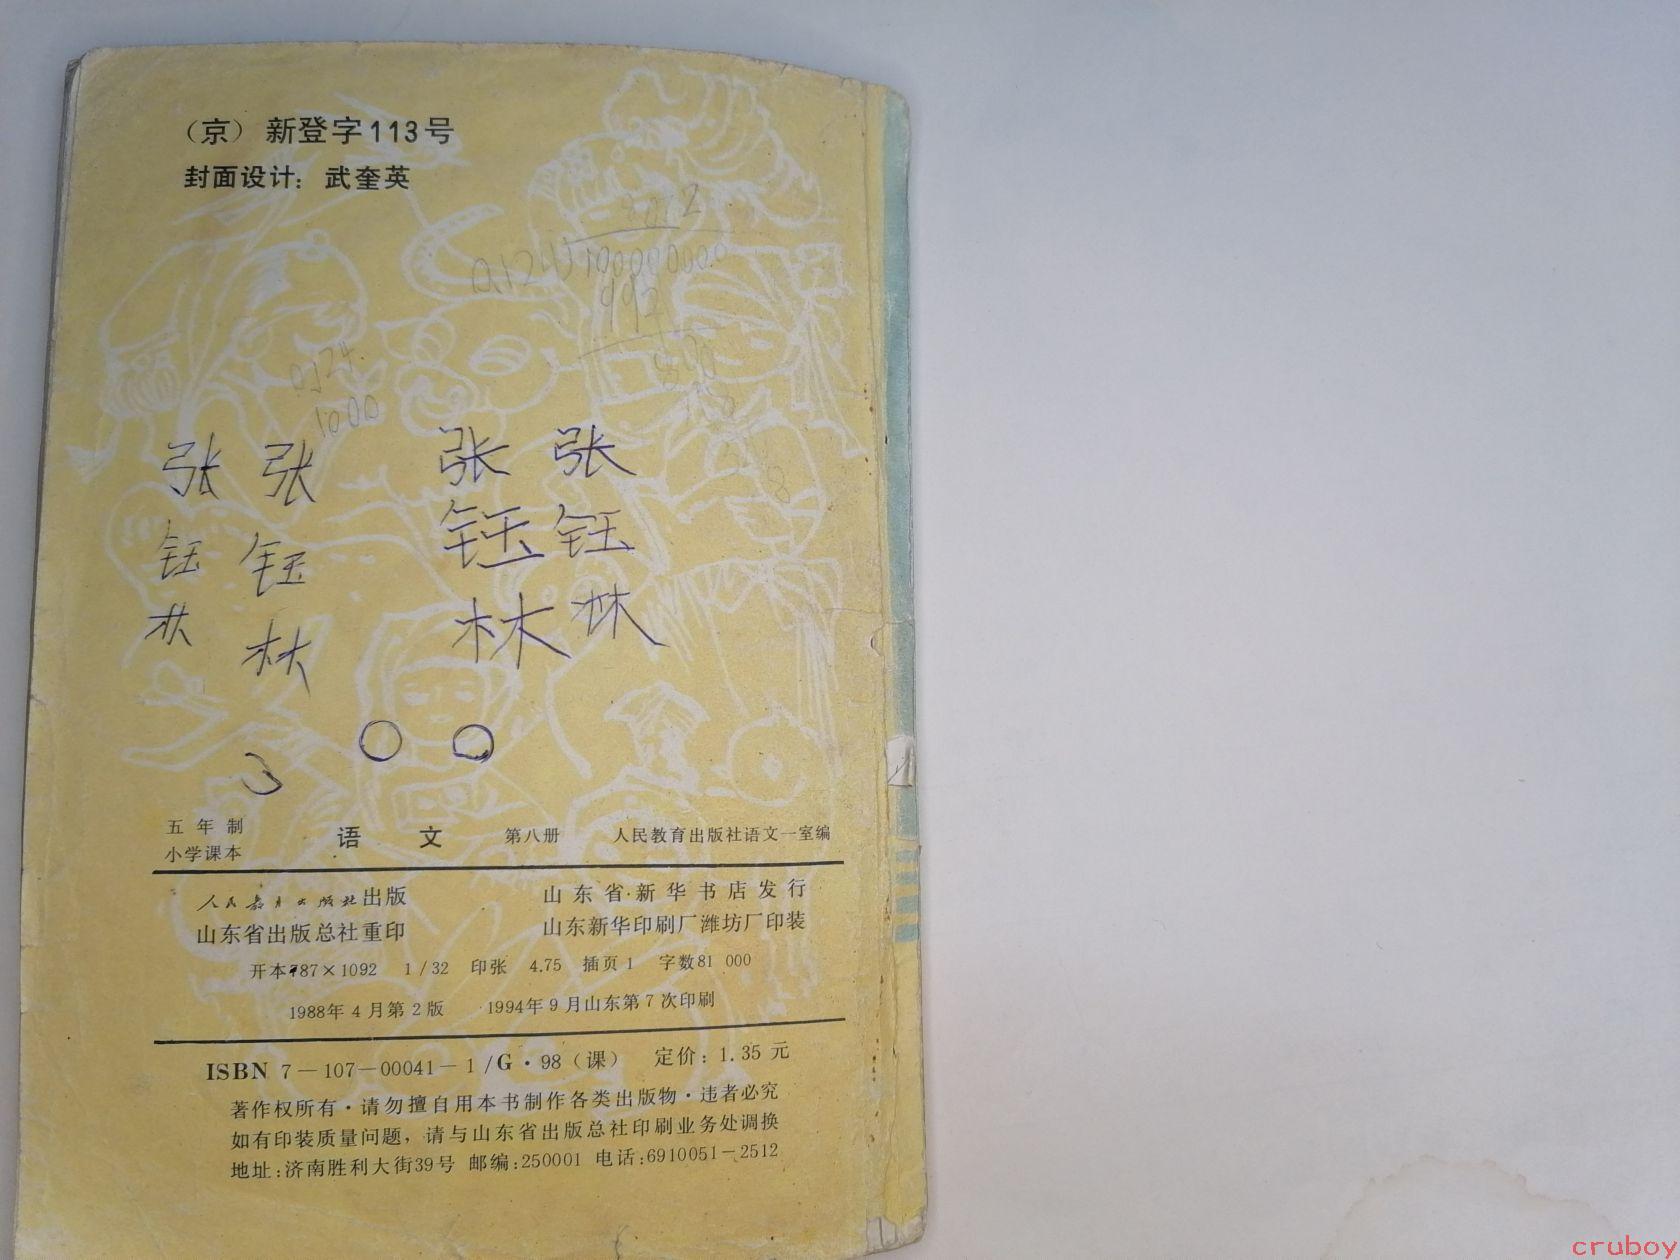 （京）新登字113号
封面设计：武奎英
0.124
1000
张 张 张 张
钰 钰 钰 钰
林 林 林 林
五年制
小学课本
语 文 第八册 人民教育出版社语文一室编
人民教育出版社出版 山东省新华书店发行
山东省出版总社重印 山东新华印刷厂潍坊厂印装
开本787×1092 1/32 印张 4.75 插页1 字数81 000
1988年4月第2版 1994年9月山东第7次印刷
ISBN 7－107－00041－1/G·98（课） 定价：1.35元
著作权所有·请勿擅自用本书制作各类出版物·违者必究
如有印装质量问题，请与山东省出版总社印刷业务处调换
地址:济南胜利大街39号 邮编:250001 电话:6910051－2512
cruboy